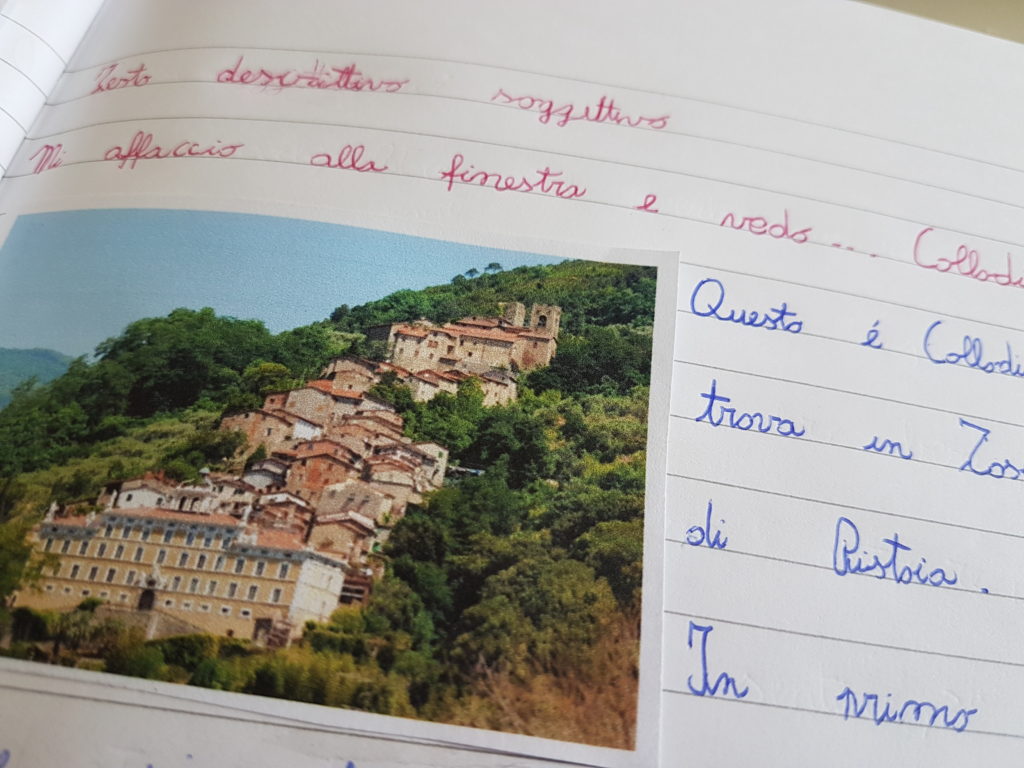 Testo descrittivo soggettivo
Mi affaccio alla finestra e vedo... Collodi
Questo é Collodi
trova in Tos
di Pistoia.
In primo